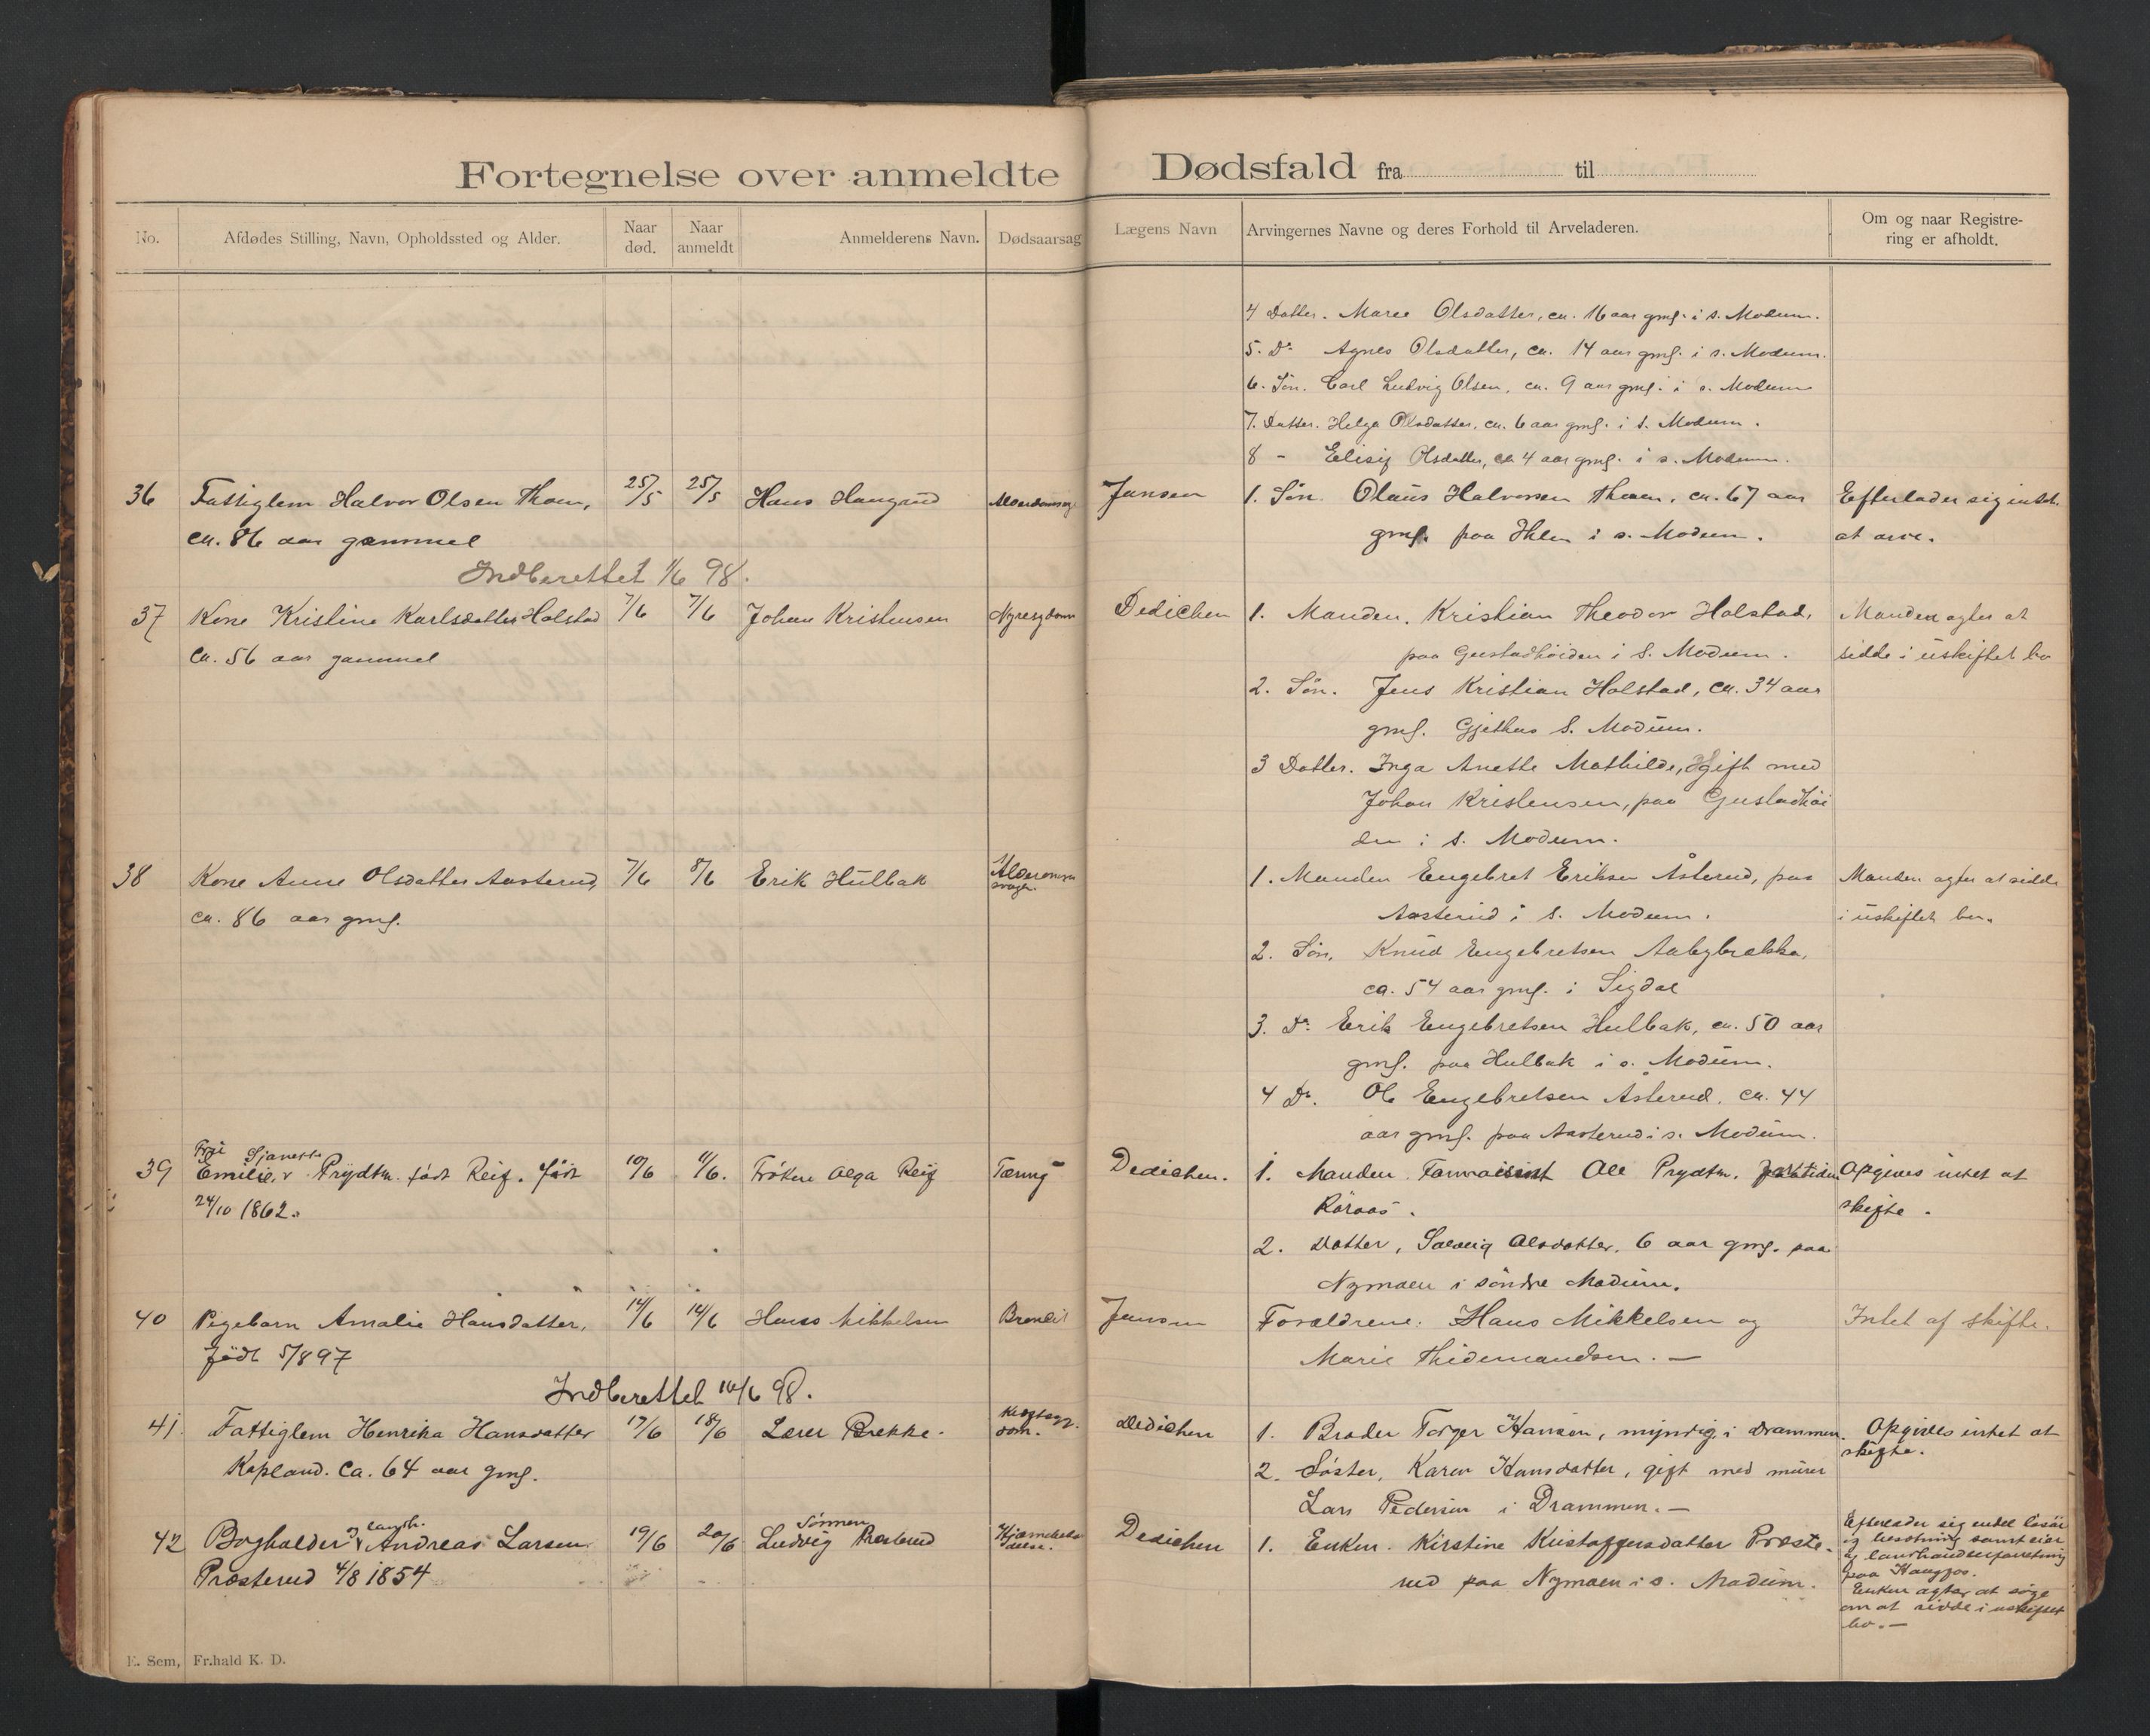 Fortegnelse over anmeldte Dødsfald fra til
No.
Afdødes Stilling, Navn, Opholdssted og Alder.
Naar død.
Naar anmeldt
Anmelderens Navn.
Dødsaarsag
Lægens Navn
Arvingernes Navne og deres Forhold til Arveladeren.
Om og naar Registre-
ring er afholdt.
4 Datter. Maree Olsdatter, ca. 16 aar gml. i s. Modum.
5. Do Agnes Olsdatter, ca. 14 aar gml. i s. Modum.
6. Søn. Carl Ludvig Olsen, ca. 9 aar gml. i s. Modum
7. Datter. Helga Olsdatter, ca. 6 aar gml. i s. Modum.
8 - Elisif Olsdatter, ca 4 aar gml. i s. Modum.
36 Fattiglem Halvor Olsen Thoen, 25/5 25/5 Hans Haugrud Jansen 1. Søn. Olaus Halvorsen Thoen, ca. 67 aar Efterlader sig intet
ca. 86 aar gammel gml. paa Hlen i s. Modum. at arve.
Indberettet 1/6 98.
37 Kone Kristine Karlsdatter Holstad 7/6 7/6 Johan Kristensen Nyresygdom Dedichen 1. Manden, Kristian Theodor Holstad, Manden agter at
ca. 56 aar gammel paa Gustadhöiden i S. Modum. sidde i uskiftet bo
2. Søn. Jens Kristian Holstad, ca. 34 aar
gml. Gjethus S. Modum.
3 Datter. Inga Anette Mathilde, gift med
Johan Kristensen, paa Gustadhöi
den i s. Modum.
38 Kone Anne Olsdatter Aasterud, 7/6 8/6 Erik Hulbak 1. Manden Engebret Eriksen Åsterud, paa Manden agter at sidde
ca. 86 aar gml. Aasterud i S. Modum. i uskiftet bo.
2. Søn, Knud Engebretsen Aabybrække,
ca. 54 aar gml. i Sigdal
3. Do Erik Engebretsen Hulbak, ca. 50 aar
gml. paa Hulbak i s. Modum.
4 Do. Ole Engebretsen Åsterud, ca. 44
aar gml. paa Aasterud i s. Modum.
Sjanette
39 Emilie v Prydtz. født Reif. født 10/6 11/6. Frøken Olga Reif Tæring Dedichen. 1. Manden Ole Prydtz. Opgives intet at
24/10 1862. Röraas. skifte.
2. Datter, Solveig Olsdatter, 6 aar gml. paa
Nymoen i söndre Modum.
40 Pigebarn Amalie Hansdatter, 14/6 14/6 Hans Mikkelsen Jansen Forældrene: Hans Mikkelsen og Intet af skifte.
født 5/8 97 Marie Thidemandsen. —
Indberettet 14/6 98.
41. Fattiglem Henrika Hansdatter 17/6 18/6 Lærer Brekke. Dedichen 1. Broder Torger Hansen, myndig i Drammen. Opgives intet at
Kopland. ca. 64 aar gml. skifte.
2. Søster, Karen Hansdatter, gift med murer
Lars Pedersen i Drammen. —
og landh.
42 Bogholder Andreas Larsen 19/6 20/6 Sønnen Ludvig Præsterud Dedichen 1. Enken. Kirstine Kristoffersdatter Præste-
Præsterud 4/8 1854 rud paa Nymoen i s. Modum.
Efterlader sig endel lösöre
og besætning samt eier
af landhandelforretning
paa Kaupfos.
Enken agter at søge
om at sidde i uskiftet
bo. —
E. Sem, Fr.hald K. D.